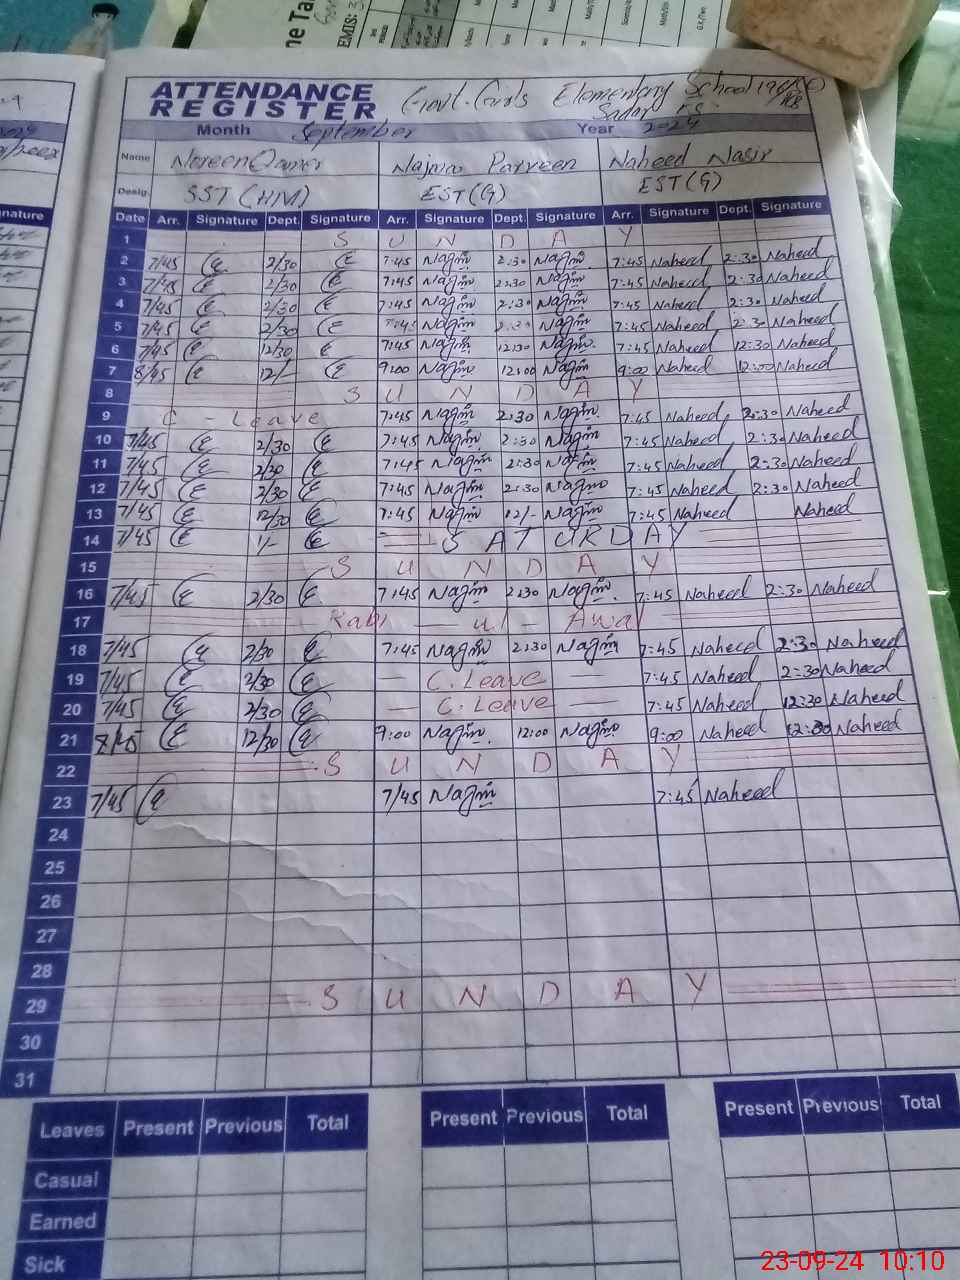 ne Ta
EMIS: 3
ATTENDANCE
REGISTER
Govt. Girls Elementary School
Sadar
Month September Year 2024
Name Noreen Qamer Najma Parveen Naheed Nasir
Desig. SST (HM) EST (G) EST (G)
Date Arr. Signature Dept. Signature Arr. Signature Dept. Signature Arr. Signature Dept. Signature
1 S U N D A Y
2 7/45 2/30 7:45 Najm 2:30 Najm 7:45 Naheed 2:30 Naheed
3 7/45 2/30 7:45 Najm 2:30 Najm 7:45 Naheed 2:30 Naheed
4 7/45 2/30 7:45 Najm 2:30 Najm 7:45 Naheed 2:30 Naheed
5 7/45 2/30 7:45 Najm 2:30 Najm 7:45 Naheed 2:30 Naheed
6 7/45 12/30 7:45 Najm 12:30 Najm 7:45 Naheed 12:30 Naheed
7 8/45 12/- 9:00 Najm 12:00 Najm 9:00 Naheed 12:00 Naheed
8 S U N D A Y
9 C - Leave 7:45 Najm 2:30 Najm 7:45 Naheed 2:30 Naheed
10 7/45 2/30 7:45 Najm 2:30 Najm 7:45 Naheed 2:30 Naheed
11 7/45 2/30 7:45 Najm 2:30 Najm 7:45 Naheed 2:30 Naheed
12 7/45 2/30 7:45 Najm 2:30 Najm 7:45 Naheed 2:30 Naheed
13 7/45 12/30 7:45 Najm 12/- Najm 7:45 Naheed Naheed
14 7/45 1/- S A T U R D A Y
15 S U N D A Y
16 7/45 2/30 7:45 Najm 2:30 Najm 7:45 Naheed 2:30 Naheed
17 Rabi — ul — Awal
18 7/45 2/30 7:45 Najm 2:30 Najm 7:45 Naheed 2:30 Naheed
19 7/45 2/30 — C. Leave — 7:45 Naheed 2:30 Naheed
20 7/45 2/30 — C. Leave — 7:45 Naheed 12:30 Naheed
21 8/45 12/30 9:00 Najm 12:00 Najm 9:00 Naheed 12:30 Naheed
22 S U N D A Y
23 7/45 7/45 Najm 7:45 Naheed
24
25
26
27
28
29 S U N D A Y
30
31
Leaves Present Previous Total Present Previous Total Present Previous Total
Casual
Earned
Sick
23-09-24 10:10